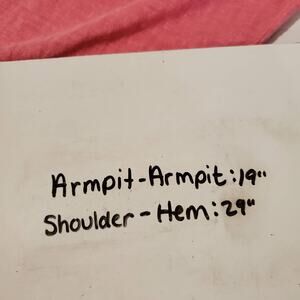 Armpit-Armpit:19"
Shoulder-Hem:29"